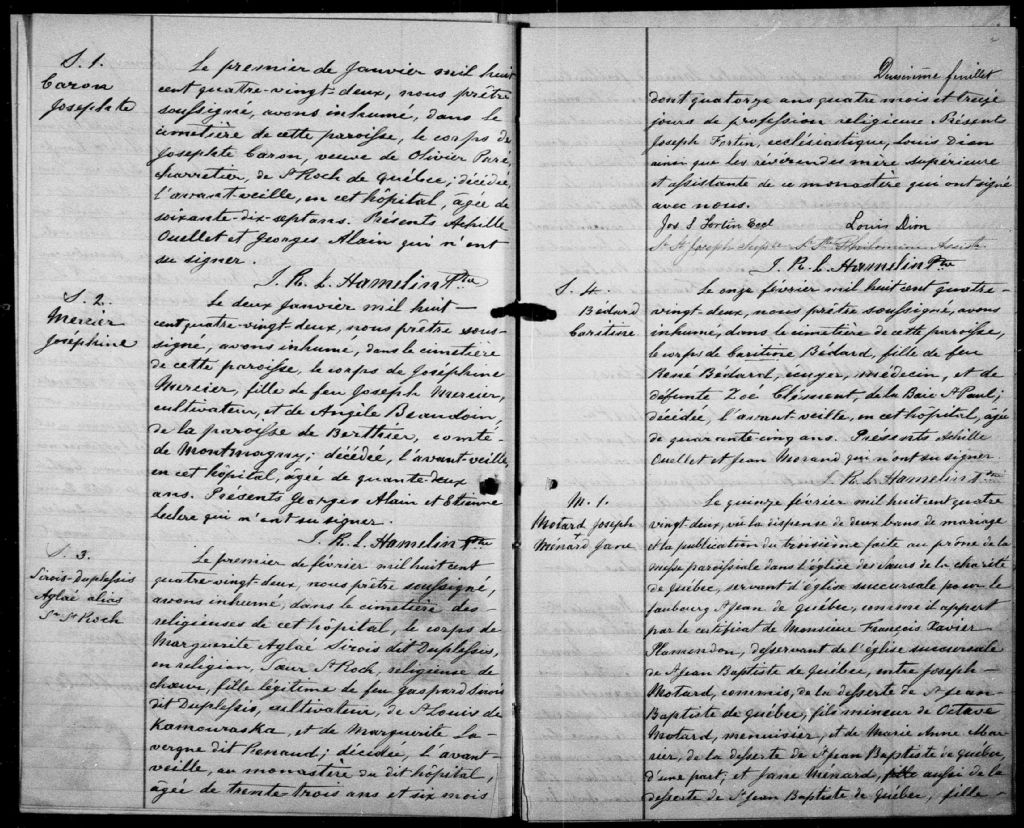 S. 1.
Caron
Josephte
Le premier de Janvier mil huit
cent quatre-vingt-deux, nous prêtre
soussigné, avons inhumé, dans le
cimetière de cette paroisse, le corps de
Josephte Caron, veuve de Olivier Paré,
charretier, de St Roch de Québec; décédée,
l'avant-veille, en cet hôpital, âgée de
soixante-dix-sept ans. Présents Achille
Ouellet et Georges Alain qui n'ont
su signer.
J. R. L. Hamelin Ptre
S. 2.
Mercier
Josephine
Le deux Janvier mil huit-
cent quatre-vingt-deux, nous prêtre sous-
signé, avons inhumé, dans le cimetière
de cette paroisse, le corps de Joséphine
Mercier, fille de feu Joseph Mercier,
cultivateur, et de Angèle Beaudoin,
de la paroisse de Berthier, comté-
de Montmagny; décédée, l'avant-veille,
en cet hôpital, âgée de quante-deux
ans. Présents Georges Alain et Etienne
Leclerc qui n'ont su signer.
J. R. L. Hamelin Ptre
S. 3.
Sirois-Duplessis
Aglaé alias
Sr St Roch
Le premier de février mil huit cent
quatre-vingt-deux, nous prêtre soussigné,
avons inhumé, dans le cimetière des-
religieuses de cet hôpital, le corps de
Marguerite Aglaé Sirois dit Duplessis,
en religion, Sœur St Roch, religieuse de
chœur, fille légitime de feu Gaspard Sirois
dit Duplessis, cultivateur, de St Louis de
Kamouraska, et de Marguerite La-
vergne dit Renaud; décédée, l'avant-
veille, au monastère du dit hôpital,
âgée de trente-trois ans et six mois
Deuxième feuillet
dont quatorze ans quatre mois et treize
jours de profession religieuse. Présents
Joseph Fortin, ecclésiastique, Louis Dion
ainsi que les révérendes mère supérieure
et assistante de ce monastère qui ont signé
avec nous.
Jos J Fortin Eccl Louis Dion
Sr St Joseph Supre Sr Ste Philomène Assiste
J. R. L. Hamelin Ptre
S. 4.
Bédard
Caritine
Le onze février mil huit cent quatre-
vingt-deux, nous prêtre soussigné, avons
inhumé, dans le cimetière de cette paroisse,
le corps de Caritine Bédard, fille de feu
René Bédard, écuyer, médecin, et de
défunte Zoé Clément, de la Baie St Paul;
décédée, l'avant veille, en cet hôpital, âgée
de quarante-cinq ans. Présents Achille
Ouellet et Jean Morand qui n'ont su signer.
J. R. L. Hamelin Ptre
M. 1.
Motard Joseph
+
Ménard Jane
Le quinze février mil huit cent quatre
vingt deux, vu la dispense de deux bans de mariage
et la publication du troisième faite au prône de la
messe paroissiale dans l'église des Sœurs de la charité
de Québec, servant d'église succursale pour le
faubourg St Jean de Québec, comme il appert
par le certificat de Monsieur François Xavier
Plamondon, desservant de l'église succursale
de St Jean Baptiste de Québec, entre Joseph
Motard, commis, de la desserte de St Jean-
Baptiste de Québec, fils mineur de Octave
Motard, menuisier, et de Marie Anne
de la desserte de St Jean Baptiste de Québec,
d'une part, et Jane Ménard, aussi de la
desserte de St Jean Baptiste de Québec, fille-